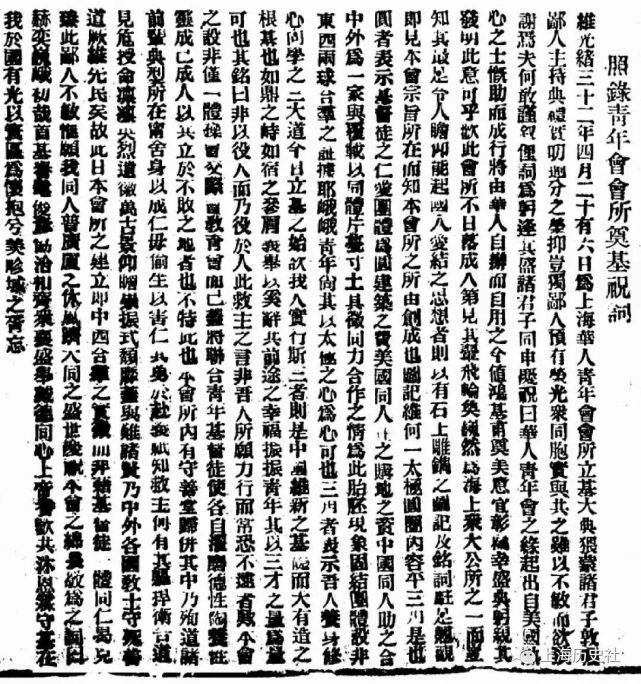 照錄青年會會所奠基祝詞
維光緒三十二年四月二十有六日為上海華人青年會會所立基大典猥蒙諸君子敦
鄙人主持典禮實叨逾分之榮抑豈獨鄙人預有榮光衆同胞實與其之雖以不敏而欲
謝焉夫何敢謹貢俚詞為躬逢其盛諸君子同申慶祝曰華人青年會之緣起出自美國
心之士慨助而成行將由華人自辦而自用之今值鴻基甫奠美意宜彰幸盛典躬親其
發明此意可乎歟此會所不日落成人第見其翬飛輪奐巍然為海上衆大公所之一而
知其最足令人瞻仰能起國人愛結之思想者則以有石上雕鐫之圖記及銘詞駐足觀
即見本會宗旨所在而知本會所之所由創成也圖記維何一太極圓圈內容平三角是也
圓者表示基督徒之仁愛團體為圓建築之費美國同人任之購地之資中國同人助之合
中外為一家與覆載以同體片臺寸土具徵同力合作之情為此胚現象固結團體設非
東西兩球合羣之證據耶峨峨青年尙其以太極之心為心可也三角者表示吾人養身修
心向學之三大道今日立基之始欲我人實行斯三者則是中國維新之基礎而大有造之
根基也如鼎之峙如宿之參爾義舉以奚辭其前途之幸福振振青年其以三才之量為量
可也其銘曰非以役人而乃役於人此救主之言非吾人所願力行而常恐不逮者歟本會
之設非僅一體操智交際教育會而已蓋將聯合青年基督徒使各自濯磨德性陶養性
靈成已成人以其立於不敗之地者也不特此也本會所內有守善堂歸併其中乃殉道諸
前輩典型所在甯舍身以成仁毋偷生以害仁其勇於赴義祇知救主何有其軀捍衛吾道
見危授命凜凜英烈道徽萬古景仰贈舉振式頹靡蓋與維諸賢乃中外各國教士守死善
道厥維先民矣故此日本會所之建立即中西合羣之實徵而非藉基督徒一體同仁曷克
臻此鄙人不敏惟願我同人普廣廈之休風躋大同之盛世後獻本會之緒敬為之詞曰
赫奕巍峨初哉首基善建俊協洽和齊衆襄盛舉載德同心上帝普歆其沐恩澤守基在
我於國有光以寰區為懷抱兮美畛域之胥忘
上海历史社